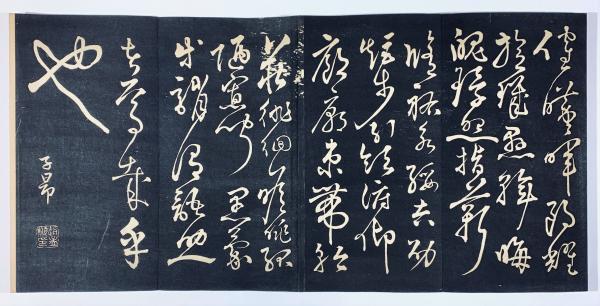 催曦暉朗耀
旋璣懸斡晦
魄環照指薪
脩祜永綏吉劭
矩步引領俯仰
廊廟束帶矜
莊徘徊瞻眺孤
陋寡聞愚蒙
等誚謂語助
者焉哉乎
也
子昂